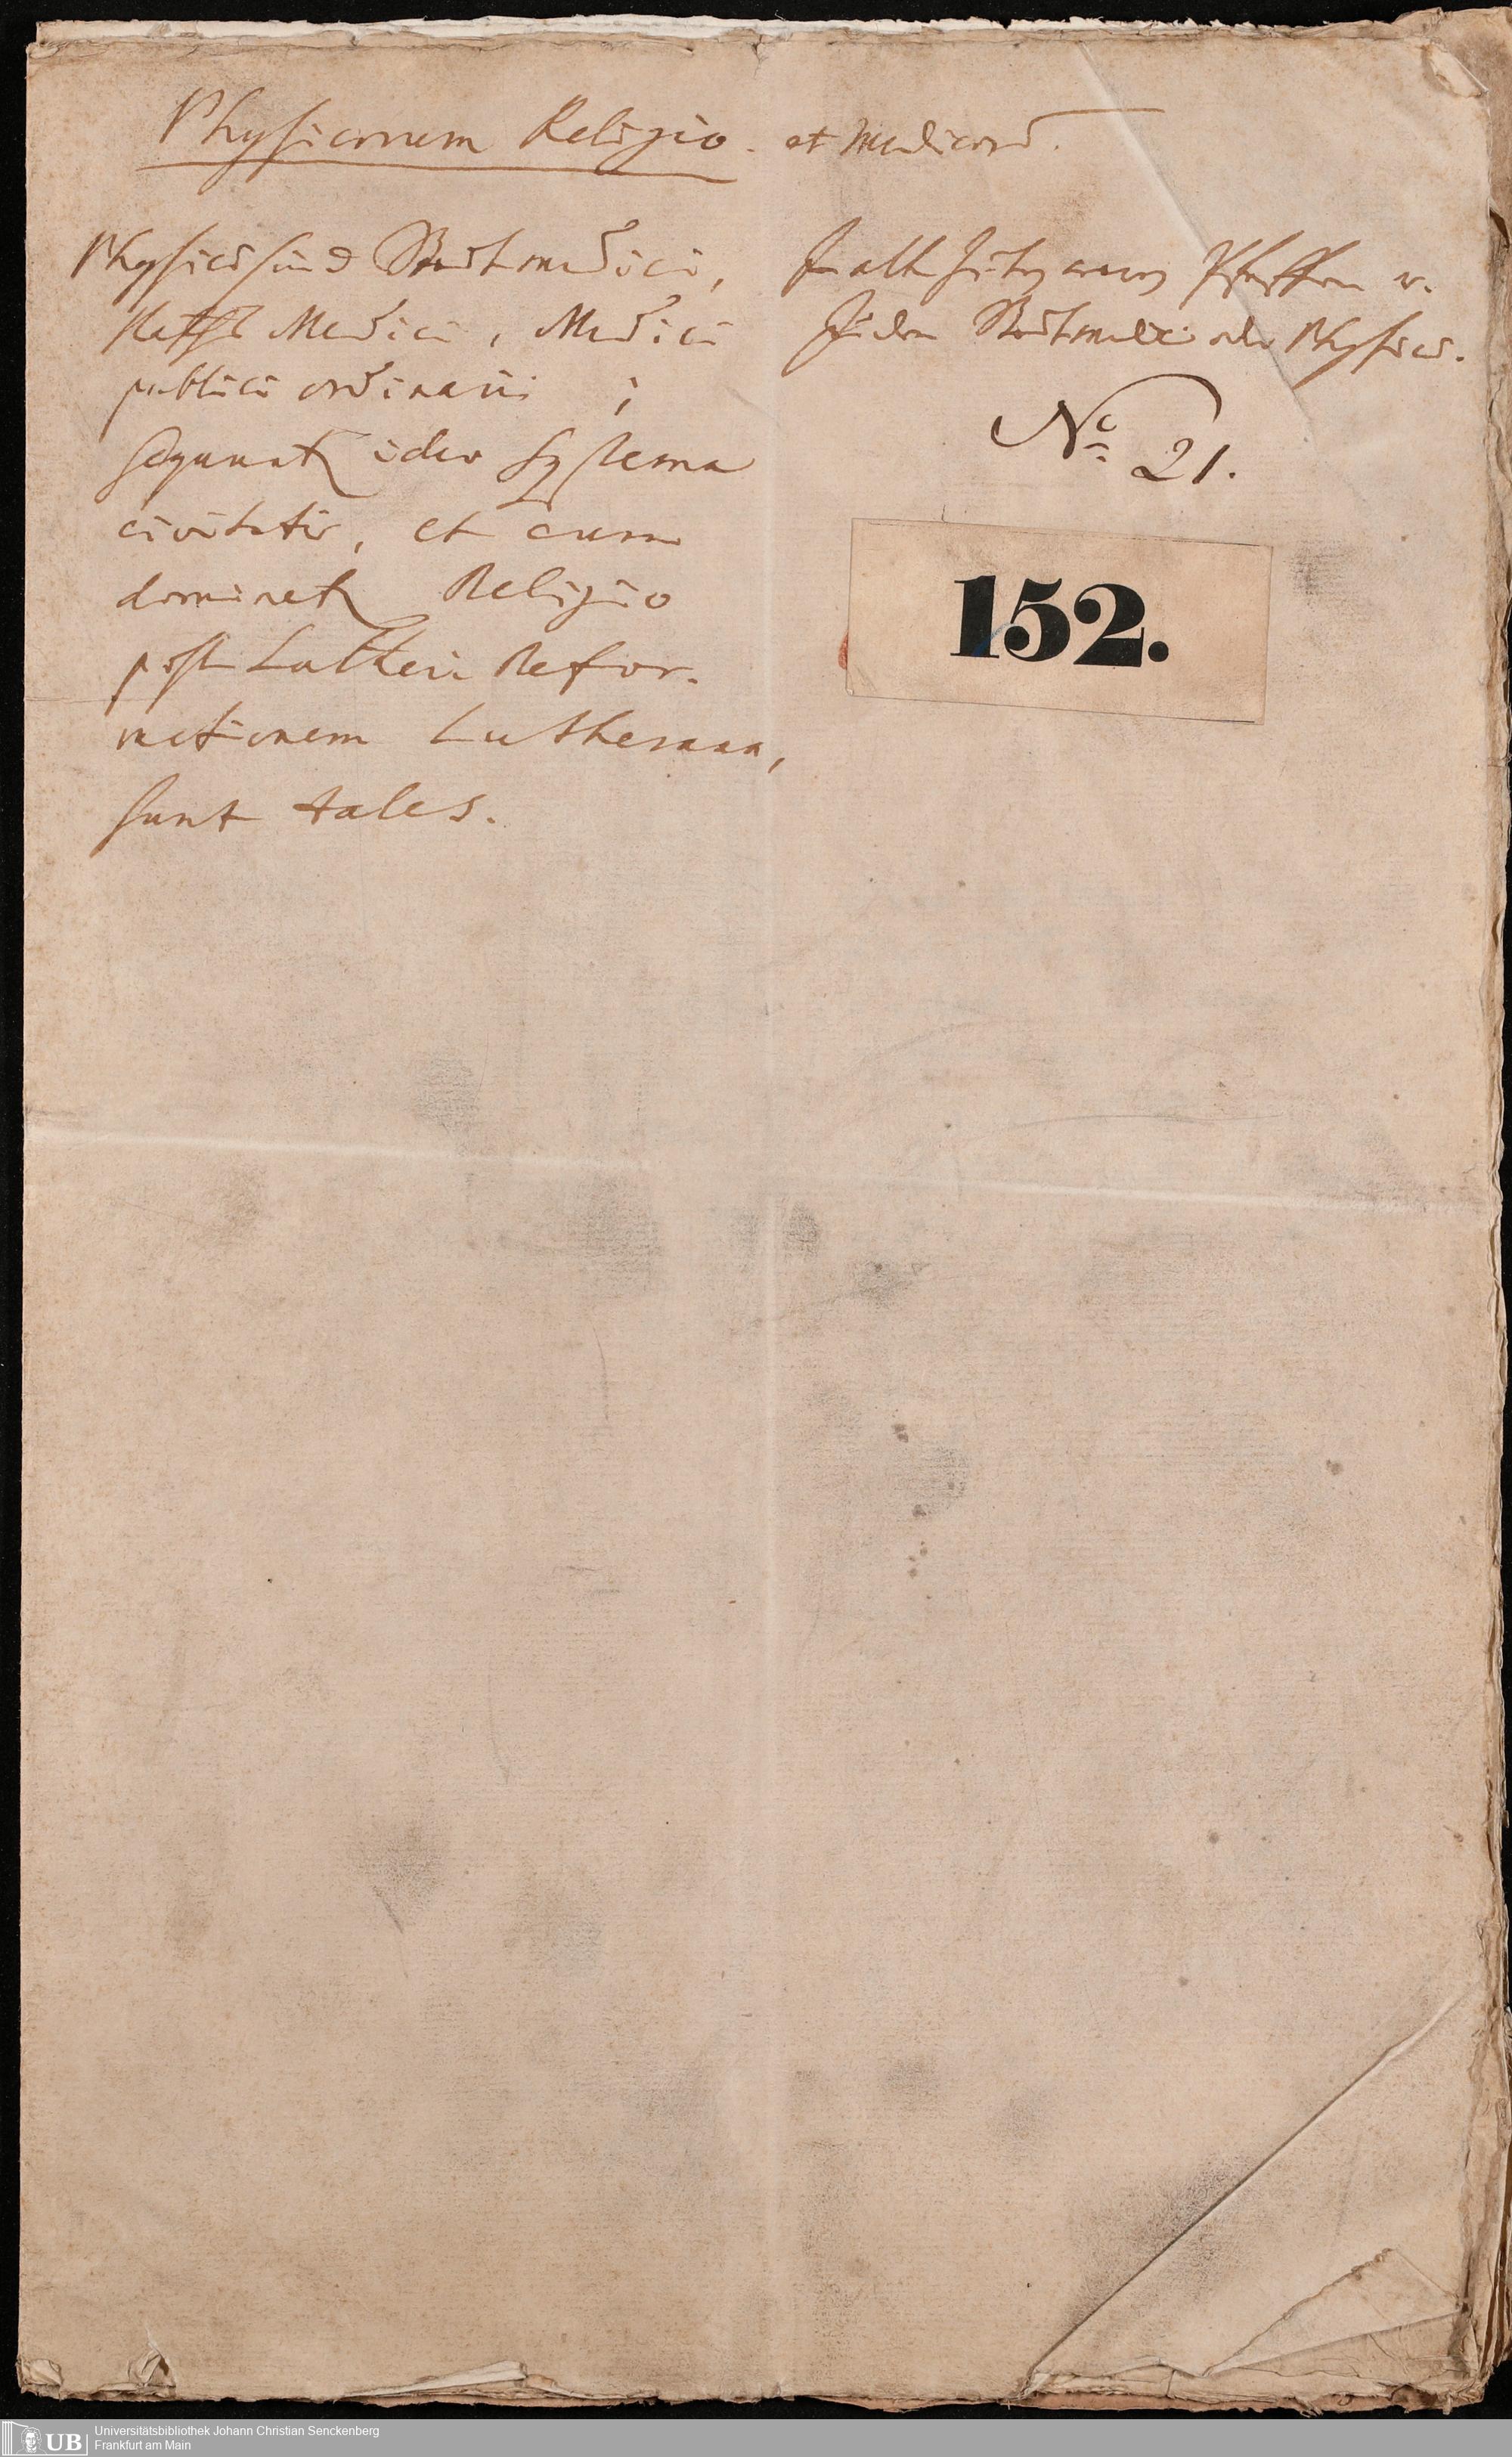 Physicorum Religio. et Medicorū.
Physici sind Stadtmedici,
Raths Medici, Medici
publici ordinarii;
sequuntr ideo Systema
civitatis, et cum
dominetr Religio
post Lutheri Refor-
mationem Lutherana,
sunt tales.
In alten Zeiten waren Pfaffen u.
Juden Stadtmedici oder Physici.
No 21.
152.
UB
Universitätsbibliothek Johann Christian Senckenberg
Frankfurt am Main